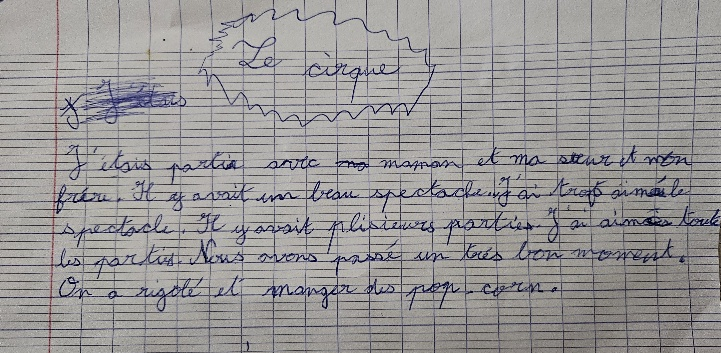 Le cirque
J'étais
J'étais partie avec maman et ma sœur et mon
frère. Il y avait un beau spectacle. J'ai trop aimé le
spectacle. Il y avait plisieurs parties. J'ai aimés toute
les parties. Nous avons passé un très bon moment.
On a rigolé et manger des pop-corn.